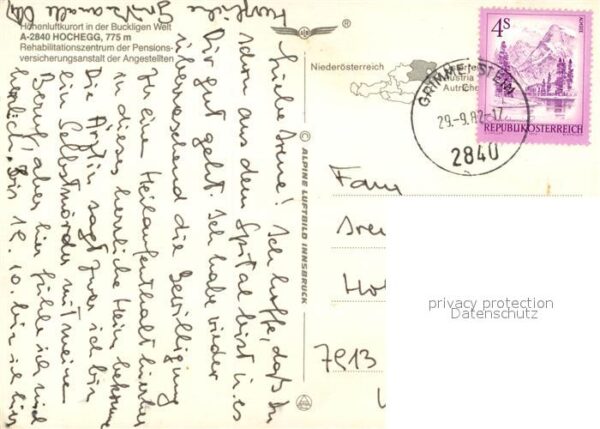 Höhenluftkurort in der Buckligen Welt
A-2840 HOCHEGG, 775 m
Rehabilitationszentrum der Pensions-
versicherungsanstalt der Angestellten
®
Niederösterreich
Austria
Autriche
GRIMMENSTEIN
29.-9.82-17
2840
4S
ALMSEE
REPUBLIK ÖSTERREICH
© ALPINE LUFTBILD INNSBRUCK
Liebe Irene! Ich hoffe, daß Du
schon aus dem Spital bist u. es
Dir gut geht. Ich habe wieder
überraschend die Bewilligung
zu einem Heilaufenthalt hierher
in dieses herrliche Heim bekommen
Die Ärztin sagt zwar ich bin
ein Selbstmörder mit meinem
Beruf, aber hier fühle ich mich
herrlich. Bis 12. 10. bin ich hier
Herzliche
Fam
Irene
7213
privacy protection
Datenschutz